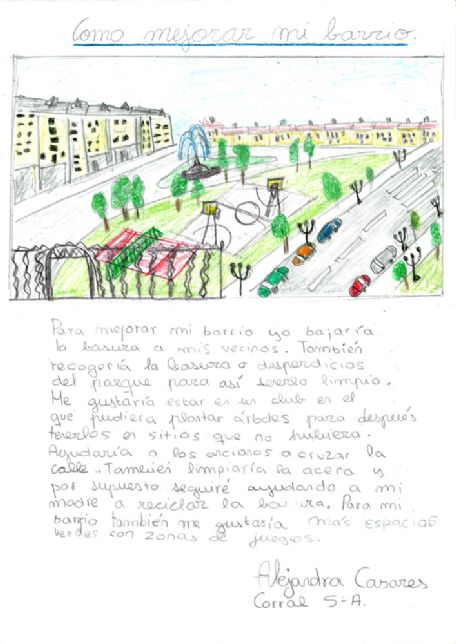 Como mejorar mi barrio.
Para mejorar mi barrio yo bajaría
la basura a mis vecinos. También
recogería la basura o desperdicios
del parque para así tenerlo limpio.
Me gustaría estar en un club en el
que pudiera plantar árboles para después
tenerlos en sitios que no hubiera.
Ayudaría a los ancianos a cruzar la
calle. También limpiaría la acera y
por supuesto seguiré ayudando a mi
madre a reciclar la basura. Para mi
barrio también me gustaría mas espacios
verdes con zonas de juegos.
Alejandra Casares
Corral 5-A.